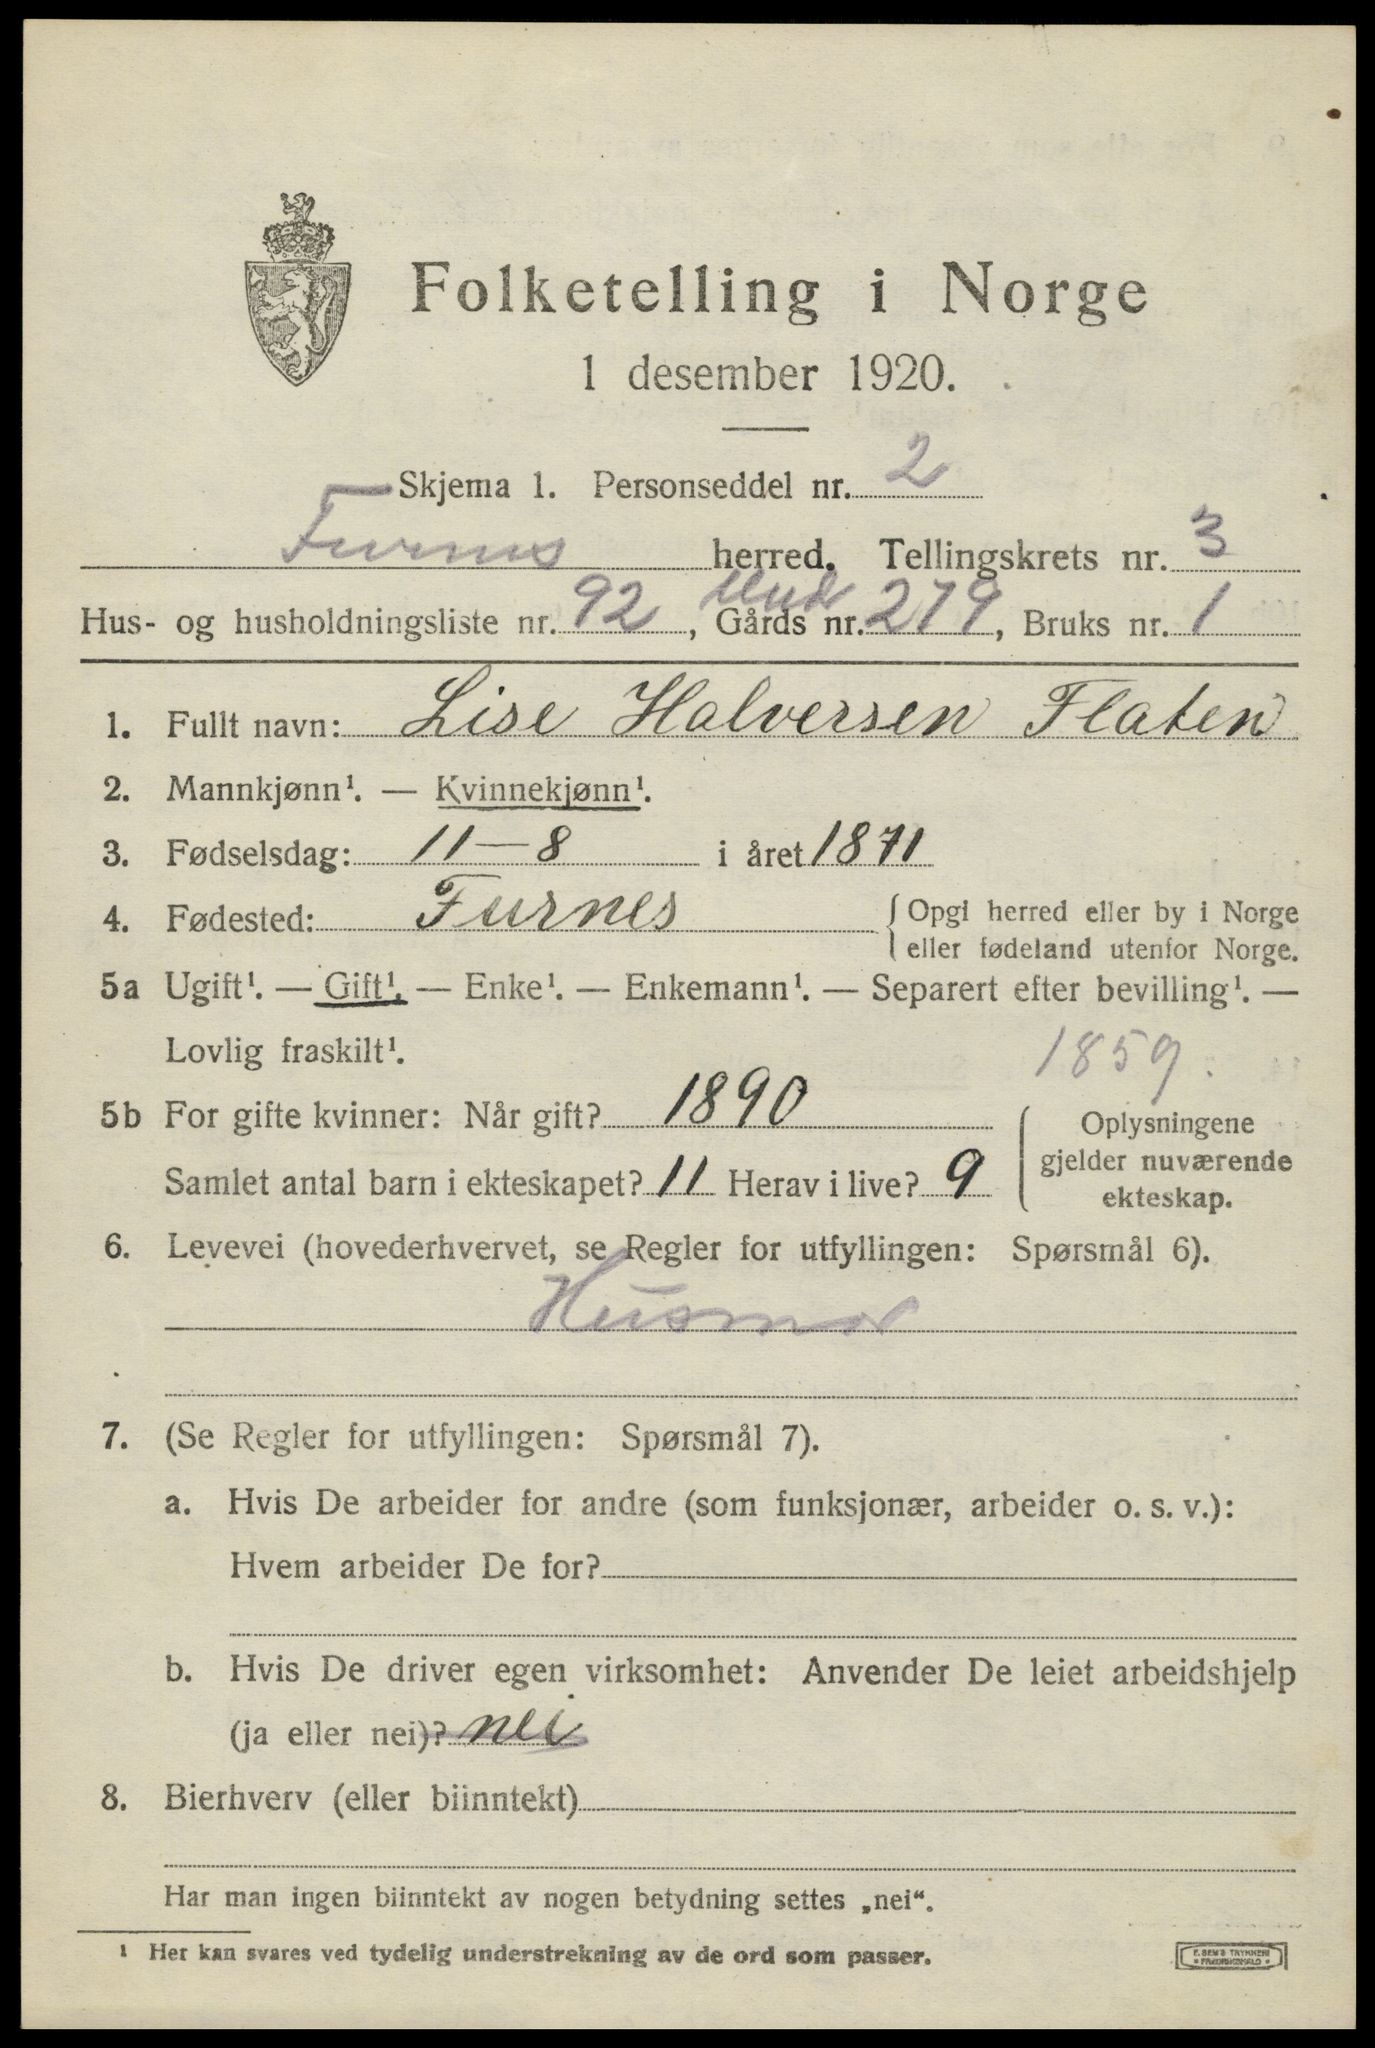 Folketelling i Norge
1 desember 1920.
Skjema 1. Personseddel nr. 2
Furnes herred. Tellingskrets nr. 3
Und
Hus- og husholdningsliste nr. 92, Gårds nr. 279, Bruks nr. 1
1. Fullt navn: Lise Halversen Flaten
2. Mannkjønn¹. — Kvinnekjønn¹.
3. Fødselsdag: 11—8 i året 1871
4. Fødested: Furnes {Opgi herred eller by i Norge
eller fødeland utenfor Norge.
5a Ugift¹. — Gift¹. — Enke¹. — Enkemann¹. — Separert efter bevilling¹. —
Lovlig fraskilt¹. 1859.
5b For gifte kvinner: Når gift? 1890 Oplysningene
gjelder nuværende
Samlet antal barn i ekteskapet? 11 Herav i live? 9
ekteskap.
6. Levevei (hovederhvervet, se Regler for utfyllingen: Spørsmål 6).
Husmor
7. (Se Regler for utfyllingen: Spørsmål 7).
a. Hvis De arbeider for andre (som funksjonær, arbeider o. s. v.):
Hvem arbeider De for?
b. Hvis De driver egen virksomhet: Anvender De leiet arbeidshjelp
(ja eller nei)? nei
8. Bierhverv (eller biinntekt)
Har man ingen biinntekt av nogen betydning settes „nei“.
¹ Her kan svares ved tydelig understrekning av de ord som passer.
E. SEM'S TRYKKERI
* FREDRIKSHALD *